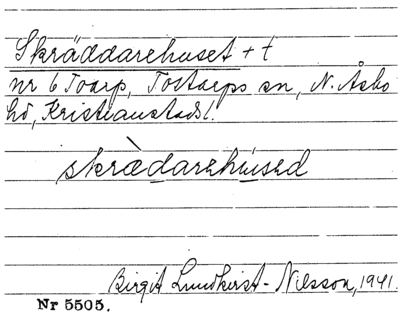 Skräddarehuset + t
nr 6 Toarp, Tostarps sn, N. Åsbo
hd, Kristianstads l.
skrὰdarehused
Birgit Lundkvist-Nilsson, 1941.
Nr 5505.